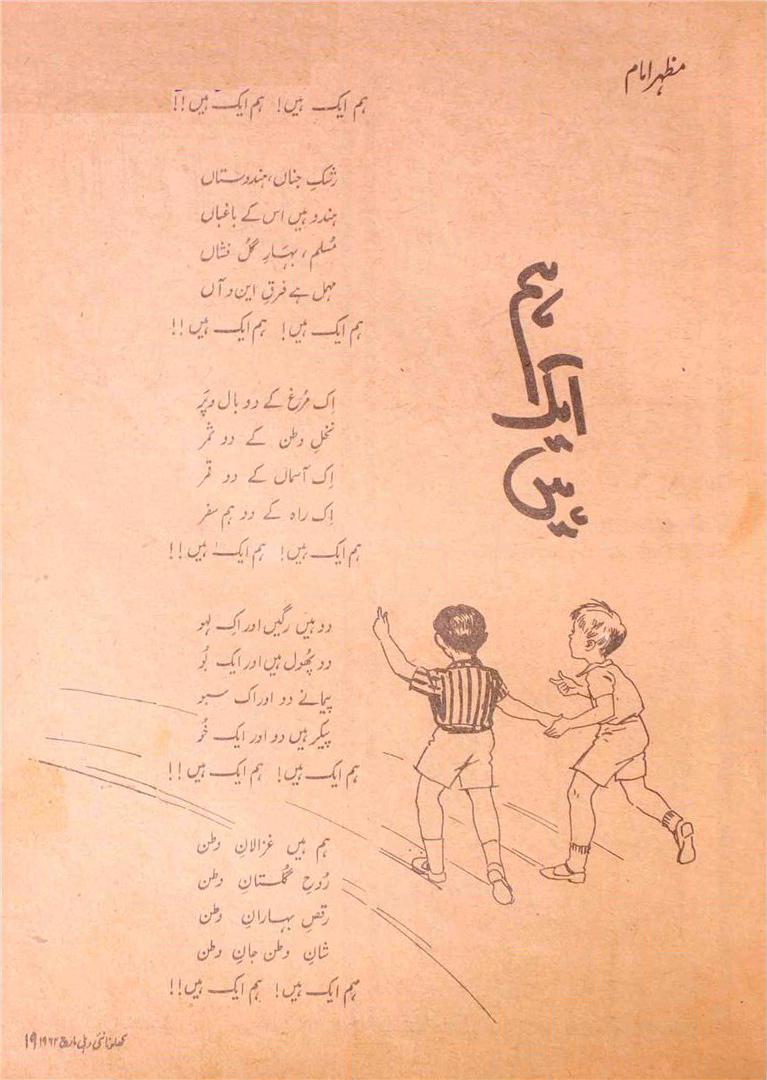 مظہر امام
ہم ایک ہیں
ہم ایک ہیں! ہم ایک ہیں!!
رشکِ جناں، ہندوستاں
ہندو ہیں اس کے باغباں
مُسلم، بہارِ گُل فشاں
مہمل ہے فرقِ این و آں
ہم ایک ہیں! ہم ایک ہیں!!
اِک مُرغ کے دو بال و پَر
نخلِ وطن کے دو ثمر
اِک آسماں کے دو قمر
اِک راہ کے دو ہم سفر
ہم ایک ہیں! ہم ایک ہیں!!
دو ہیں رگیں اور اِک لہو
دو پھُول ہیں اور ایک بُو
پیمانے دو اور اک سبو
پیکر ہیں دو اور ایک خُو
ہم ایک ہیں! ہم ایک ہیں!!
ہم ہیں غزالانِ وطن
رُوحِ گلُستانِ وطن
رقصِ بہارانِ وطن
شانِ وطن جانِ وطن
ہم ایک ہیں! ہم ایک ہیں!!
کھلونا نئی دہلی مارچ ۱۹۶۲ ۱۹